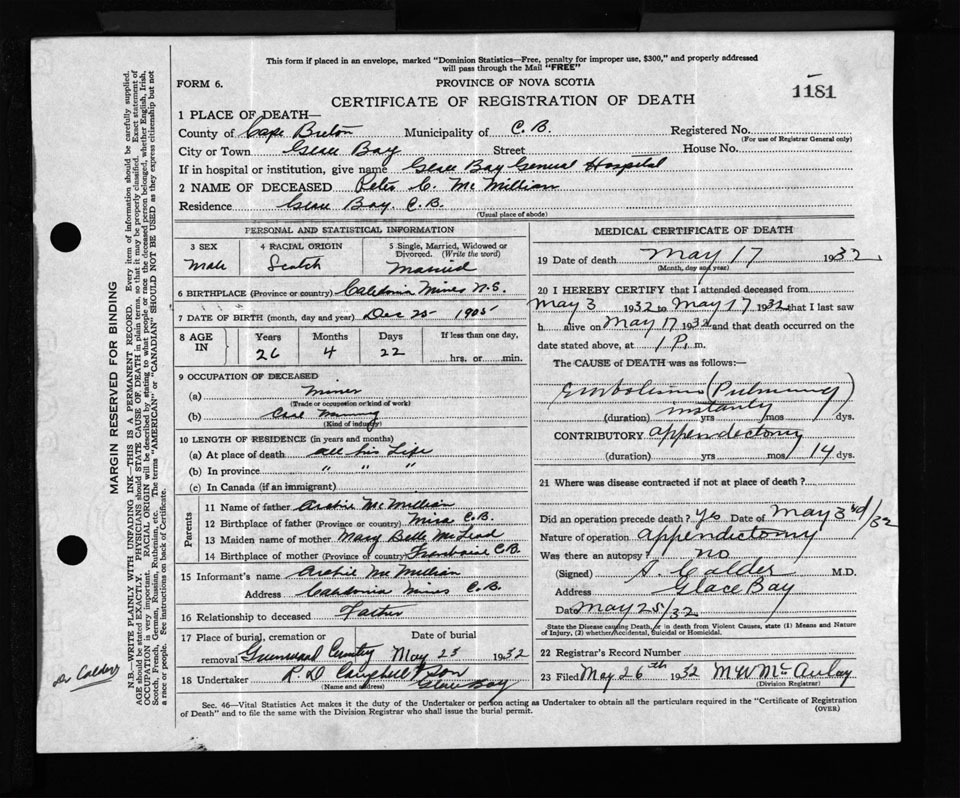 This form if placed in an envelope, marked "Dominion Statistics—Free, penalty for improper use, $300," and properly addressed
will pass through the Mail "FREE"
FORM 6.
PROVINCE OF NOVA SCOTIA
1181
CERTIFICATE OF REGISTRATION OF DEATH
1 PLACE OF DEATH—
County of Cape Breton Municipality of C. B. Registered No.
(For use of Registrar General only)
City or Town Glace Bay Street House No.
If in hospital or institution, give name Glace Bay General Hospital
2 NAME OF DECEASED Peter C. McMillian
Residence Glace Bay. C.B.
(Usual place of abode)
PERSONAL AND STATISTICAL INFORMATION
3 SEX 4 RACIAL ORIGIN 5 Single, Married, Widowed or
Divorced. (Write the word)
Male Scotch Married
6 BIRTHPLACE (Province or country) Caledonia Mines N.S.
7 DATE OF BIRTH (month, day and year) Dec 25 1905
8 AGE IN Years Months Days If less than one day,
26 4 22 hrs. or min.
9 OCCUPATION OF DECEASED
(a) Miner
(Trade or occupation or kind of work)
(b) Coal Mining
(Kind of industry)
10 LENGTH OF RESIDENCE (in years and months)
(a) At place of death all his Life
(b) In province " " "
(c) In Canada (if an immigrant)
Parents
11 Name of father Archie McMillian
12 Birthplace of father (Province or country) Mira C.B.
13 Maiden name of mother Mary Belle McLeod
14 Birthplace of mother (Province or country) Framboise C.B.
15 Informant's name Archie McMillian
Address Caledonia Mines C.B.
16 Relationship to deceased Father
17 Place of burial, cremation or Date of burial
removal Greenwood Cemetry May 23 1932
18 Undertaker R. D. Campbell & Son
(Name and address) Glace Bay
MEDICAL CERTIFICATE OF DEATH
19 Date of death May 17 1932
(Month, day and year)
20 I HEREBY CERTIFY that I attended deceased from
May 3 1932 to May 17 1932 that I last saw
h alive on May 17 1932 and that death occurred on the
date stated above, at 1 P. m.
The CAUSE of DEATH was as follows:—
Embolism (Pulmonary)
instantly
(duration) yrs mos dys.
CONTRIBUTORY appendectomy
(duration) yrs mos 14 dys.
21 Where was disease contracted if not at place of death?
Did an operation precede death? Yes Date of May 3rd/32
Nature of operation appendectomy
Was there an autopsy? no
(Signed) A. Calder M.D.
Address Glace Bay
Date May 25/32
State the Disease causing Death, or in death from Violent Causes, state (1) Means and Nature
of Injury, (2) whether Accidental, Suicidal or Homicidal.
22 Registrar's Record Number
23 Filed May 26th 1932 M W McAulay
(Division Registrar)
Sec. 46—Vital Statistics Act makes it the duty of the Undertaker or person acting as Undertaker to obtain all the particulars required in the "Certificate of Registration
of Death" and to file the same with the Division Registrar who shall issue the burial permit.
(OVER)
MARGIN RESERVED FOR BINDING
N.B.—WRITE PLAINLY WITH UNFADING INK—THIS IS A PERMANENT RECORD. Every item of information should be carefully supplied.
AGE should be stated EXACTLY. PHYSICIANS should STATE CAUSE OF DEATH in plain terms, so that it may be properly classified. Exact statement of
OCCUPATION is very important. RACIAL ORIGIN will be described by stating to what people or race the deceased person belonged, whether English, Irish,
Scotch, French, German, Russian, Ruthenian, etc. The terms "AMERICAN" or "CANADIAN" SHOULD NOT BE USED as they express citizenship but not
a race or people. See instructions on back of Certificate.
Dr Calder